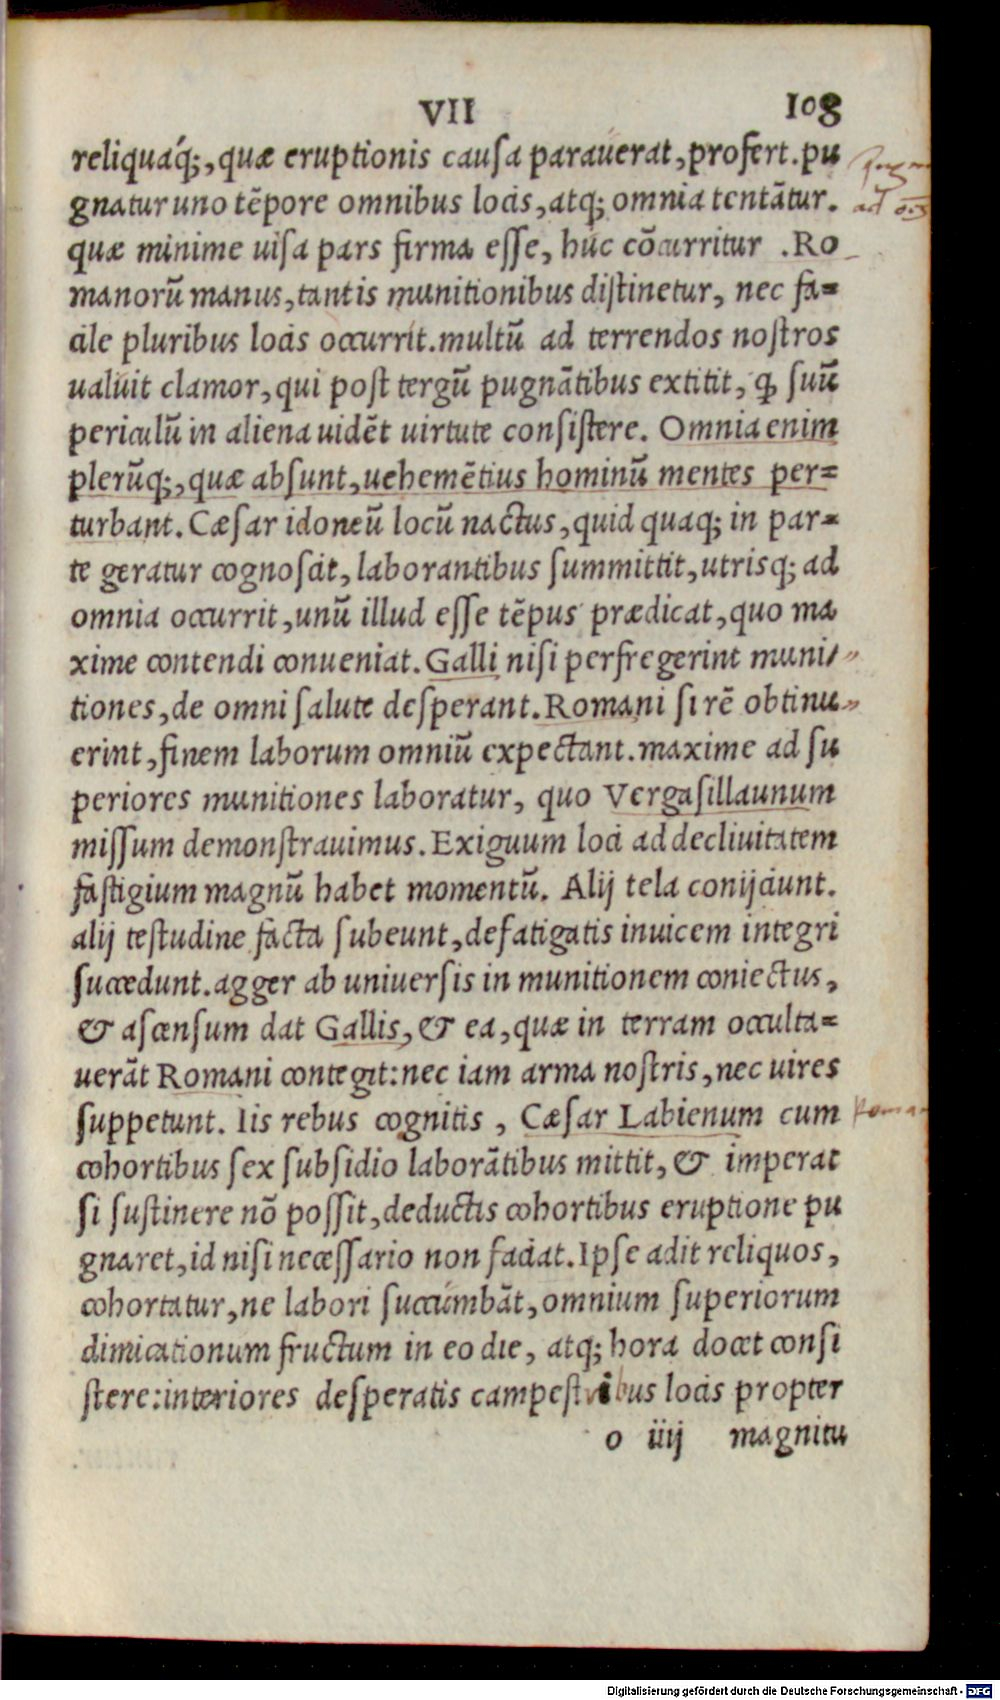 VII 108
reliquaq́;, quæ eruptionis causa parauerat, profert. pu
gnatur uno tēpore omnibus locis, atq; omnia tentātur.
quæ minime uisa pars firma esse, huc cōcurritur . Ro
manorū manus, tantis munitionibus distinetur, nec fa=
cile pluribus locis occurrit. multū ad terrendos nostros
ualuit clamor, qui post tergū pugnātibus extitit, ꝙ suū
periculū in aliena uidēt uirtute consistere. Omnia enim
plerūq;, quæ absunt, uehemētius hominū mentes per=
turbant. Cæsar idoneū locū nactus, quid quaq; in par=
te geratur cognoscit, laborantibus summittit, utrisq; ad
omnia occurrit, unū illud esse tēpus prædicat, quo ma
xime contendi conueniat. Galli nisi perfregerint muni
tiones, de omni salute desperant. Romani si rē obtinu
erint, finem laborum omniū expectant. maxime ad su
periores munitiones laboratur, quo Vergasillaunum
missum demonstrauimus. Exiguum loci ad decliuitatem
fastigium magnū habet momentū. Alij tela conijciunt.
alij testudine facta subeunt, defatigatis inuicem integri
succedunt. agger ab uniuersis in munitionem coniectus,
& ascensum dat Gallis, & ea, quæ in terram occulta=
uerāt Romani contegit: nec iam arma nostris, nec uires
suppetunt. Iis rebus cognitis , Cæsar Labienum cum
cohortibus sex subsidio laborātibus mittit, & imperat
si sustinere nō possit, deductis cohortibus eruptione pu
gnaret, id nisi necessario non faciat. Ipse adit reliquos,
cohortatur, ne labori succumbāt, omnium superiorum
dimicationum fructum in eo die, atq; hora docet consi
stere: interiores desperatis campestribus locis propter
o iiij magnitu
Digitalisierung gefördert durch die Deutsche Forschungsgemeinschaft - DFG